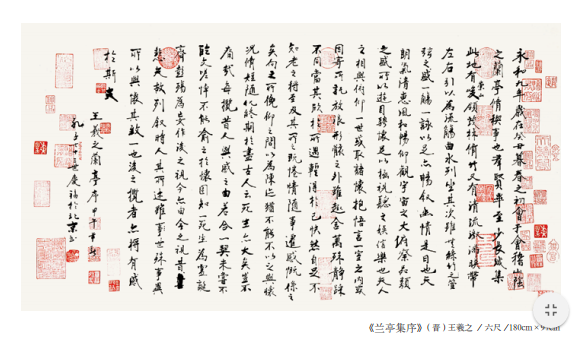 永和九年歲在癸丑暮春之初會于會稽山陰
之蘭亭脩稧事也羣賢畢至少長咸集
此地有崇山峻領茂林脩竹又有清流激湍映帶
左右引以為流觴曲水列坐其次雖無絲竹管
弦之盛一觴一詠亦足以暢敘幽情是日也天
朗氣清惠風和暢仰觀宇宙之大俯察品類
之盛所以遊目騁懷足以極視聽之娛信可樂也夫人
之相與俯仰一世或取諸懷抱悟言一室之內或
因寄所託放浪形骸之外雖趣舍萬殊靜躁
不同當其欣於所遇暫得於己快然自足不
知老之將至及其所之既惓情隨事遷感慨係之
矣向之所欣俛仰之間以為陳迹猶不能不以之興懷
況脩短隨化終期於盡古人云死生亦大矣豈不
痛哉每攬昔人興感之由若合一契未嘗不
臨文嗟悼不能喻之於懷固知一死生為虛誕
齊彭殤為妄作後之視今亦由今之視昔
悲夫故列敘時人錄其所述雖世殊事異
所以興懷其致一也後之攬者亦將有感
於斯文
王羲之蘭亭序甲午
孔子世慶福於北京
《兰亭集序》（晋）王羲之 / 六尺 /180cm × 97cm